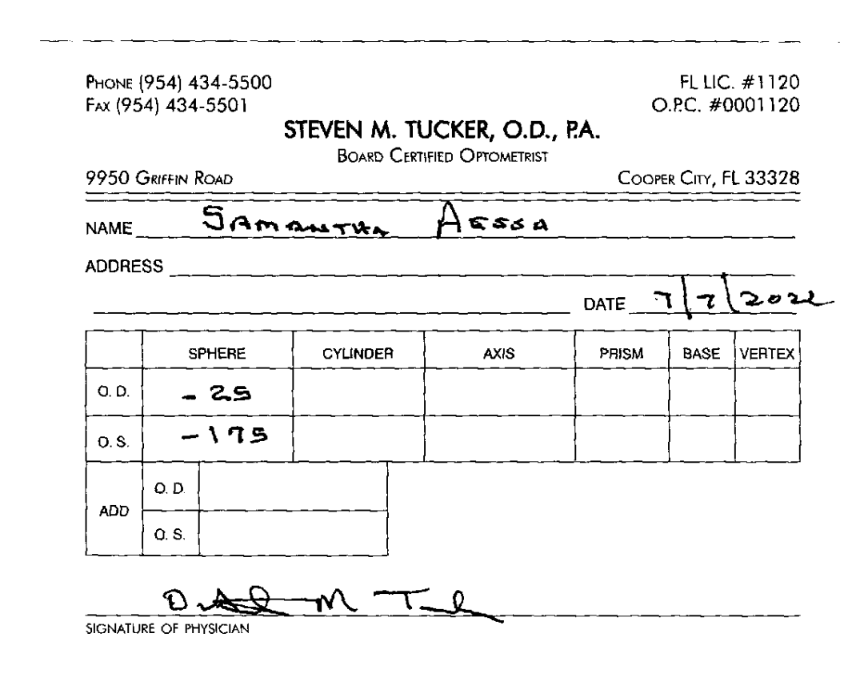 PHONE (954) 434-5500 FL LIC. #1120
FAX (954) 434-5501 O.P.C. #0001120
STEVEN M. TUCKER, O.D., P.A.
BOARD CERTIFIED OPTOMETRIST
9950 GRIFFIN ROAD COOPER CITY, FL 33328
NAME SAMANTHA AESSA
ADDRESS
DATE 7/7/2022
SPHERE CYLINDER AXIS PRISM BASE VERTEX
O.D. - 25
O.S. - 175
ADD
O.D.
O.S.
SIGNATURE OF PHYSICIAN